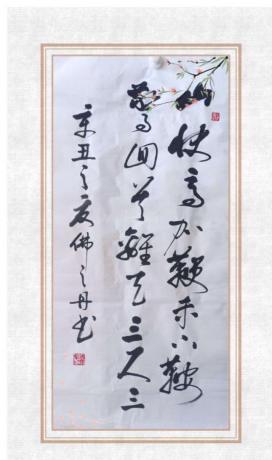 山快马加鞭未下鞍
驚回首離天三尺三
辛丑之夏佛之丹书